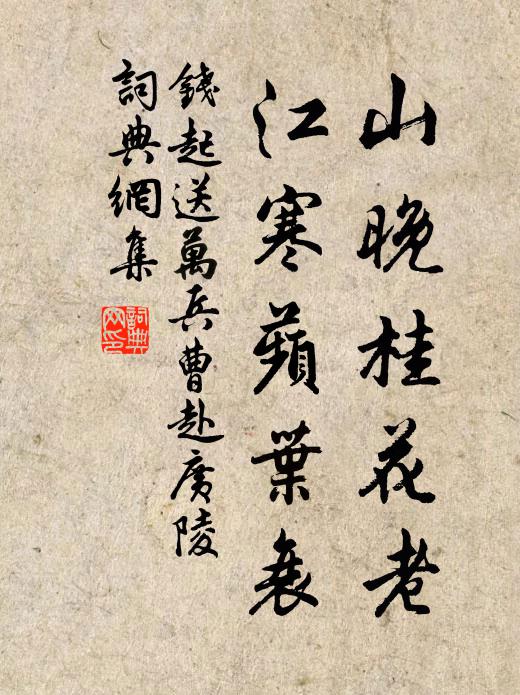 山晚桂花老
江寒蘋葉衰
錢起送萬兵曹赴廣陵
詞典網集
詞典
网印